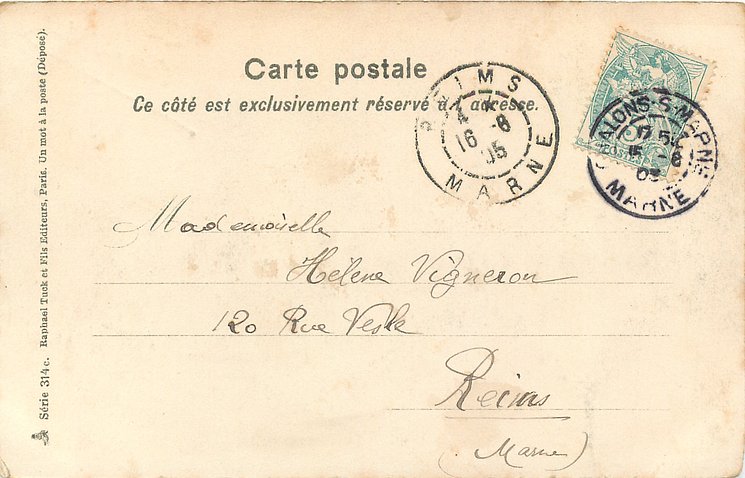 Carte postale
Ce côté est exclusivement réservé à l'adresse.
REIMS
16 -6
05
MARNE
CHALONS-S-MARNE
15 -6
05
MARNE
Mademoiselle
Hélène Vigneron
120 Rue Vesle
Reims
(Marne)
Série 314 c. Raphael Tuck et Fils Editeurs, Paris. Un mot à la poste (Déposé).